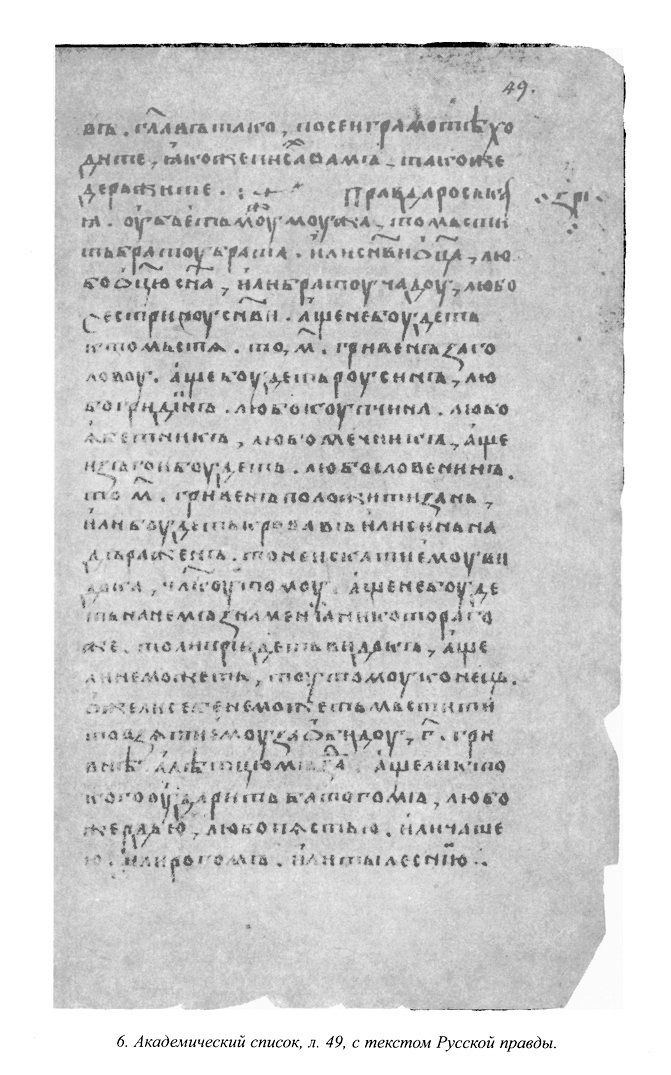 49.
въ. гл҃авъ тако, по сеи грамотѣ хо
дите, ꙗкоже писа̑ вамъ. такоже
держите. правда роськаꙗ
ꙗ. оубьеть моужь моужа, то мьсти
ть братоу брата. или сн҃ви ѿц҃а, лю
бо ѿц҃ю сн҃а, или братоу чадоу, любо
сестриноу сн҃ви. аще не боудеть
кто мьстѧ. то, м҃. гривенъ за го
ловоу. аще боудеть роусинъ, лю
бо гридинъ. любо коупчина. любо
ꙗбетникъ, любо мечникъ, аще
изъгои боудеть. любо словенинъ.
то м҃. гривенъ положити зань,
или боудеть кровавъ или синь на
дъраженъ. то не искати емоу ви
дока, чл҃коу томоу. аще не боуде
ть на немъ знамениа никотораго
же. толи приидеть видокъ, аще
ли неможеть, тоу томоу конець.
ѡже ли себе не можеть мьстити
то взѧти емоу за ѡбидоу, г҃. гри
внѣ. а лѣтцю мъзда. аще ли кто
кого оударить батогомъ, любо
жердью, любо пѧстью. или чаше
ю. или рогомъ. или тылеснию.
6. Академический список, л. 49, с текстом Русской правды.